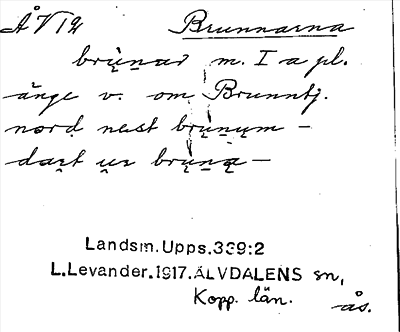 ÅV 12 Brunnarna
brùnar m. I a pl.
änge v. om Brunntj.
nord næst brùnum –
dart ur brùna –
Landsm.Upps.339:2
L.Levander.1917.ÄLVDALENS sn,
Kopp. län.
ås.